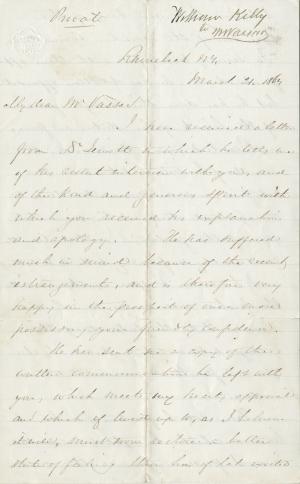 Private
William Kelly
to
M Vassar
Rhinebeck N.Y.
March 21. 1864
My dear Mr Vassar
I have received a letter
from Dr Jewett in which he tells me
of his recent interview with you, and
of the kind and generous spirit with
which you received his explanation
and apology. He has suffered
much in mind because of the recent
estrangement, and is therefore very
happy in the prospect of once more
possessing your friendly confidence.
He has sent me a copy of the
written communication he left with
you, which meets my hearty approval
and which if lived up to, as I believe
it will, must soon restore a better
state of feeling than has of late existed